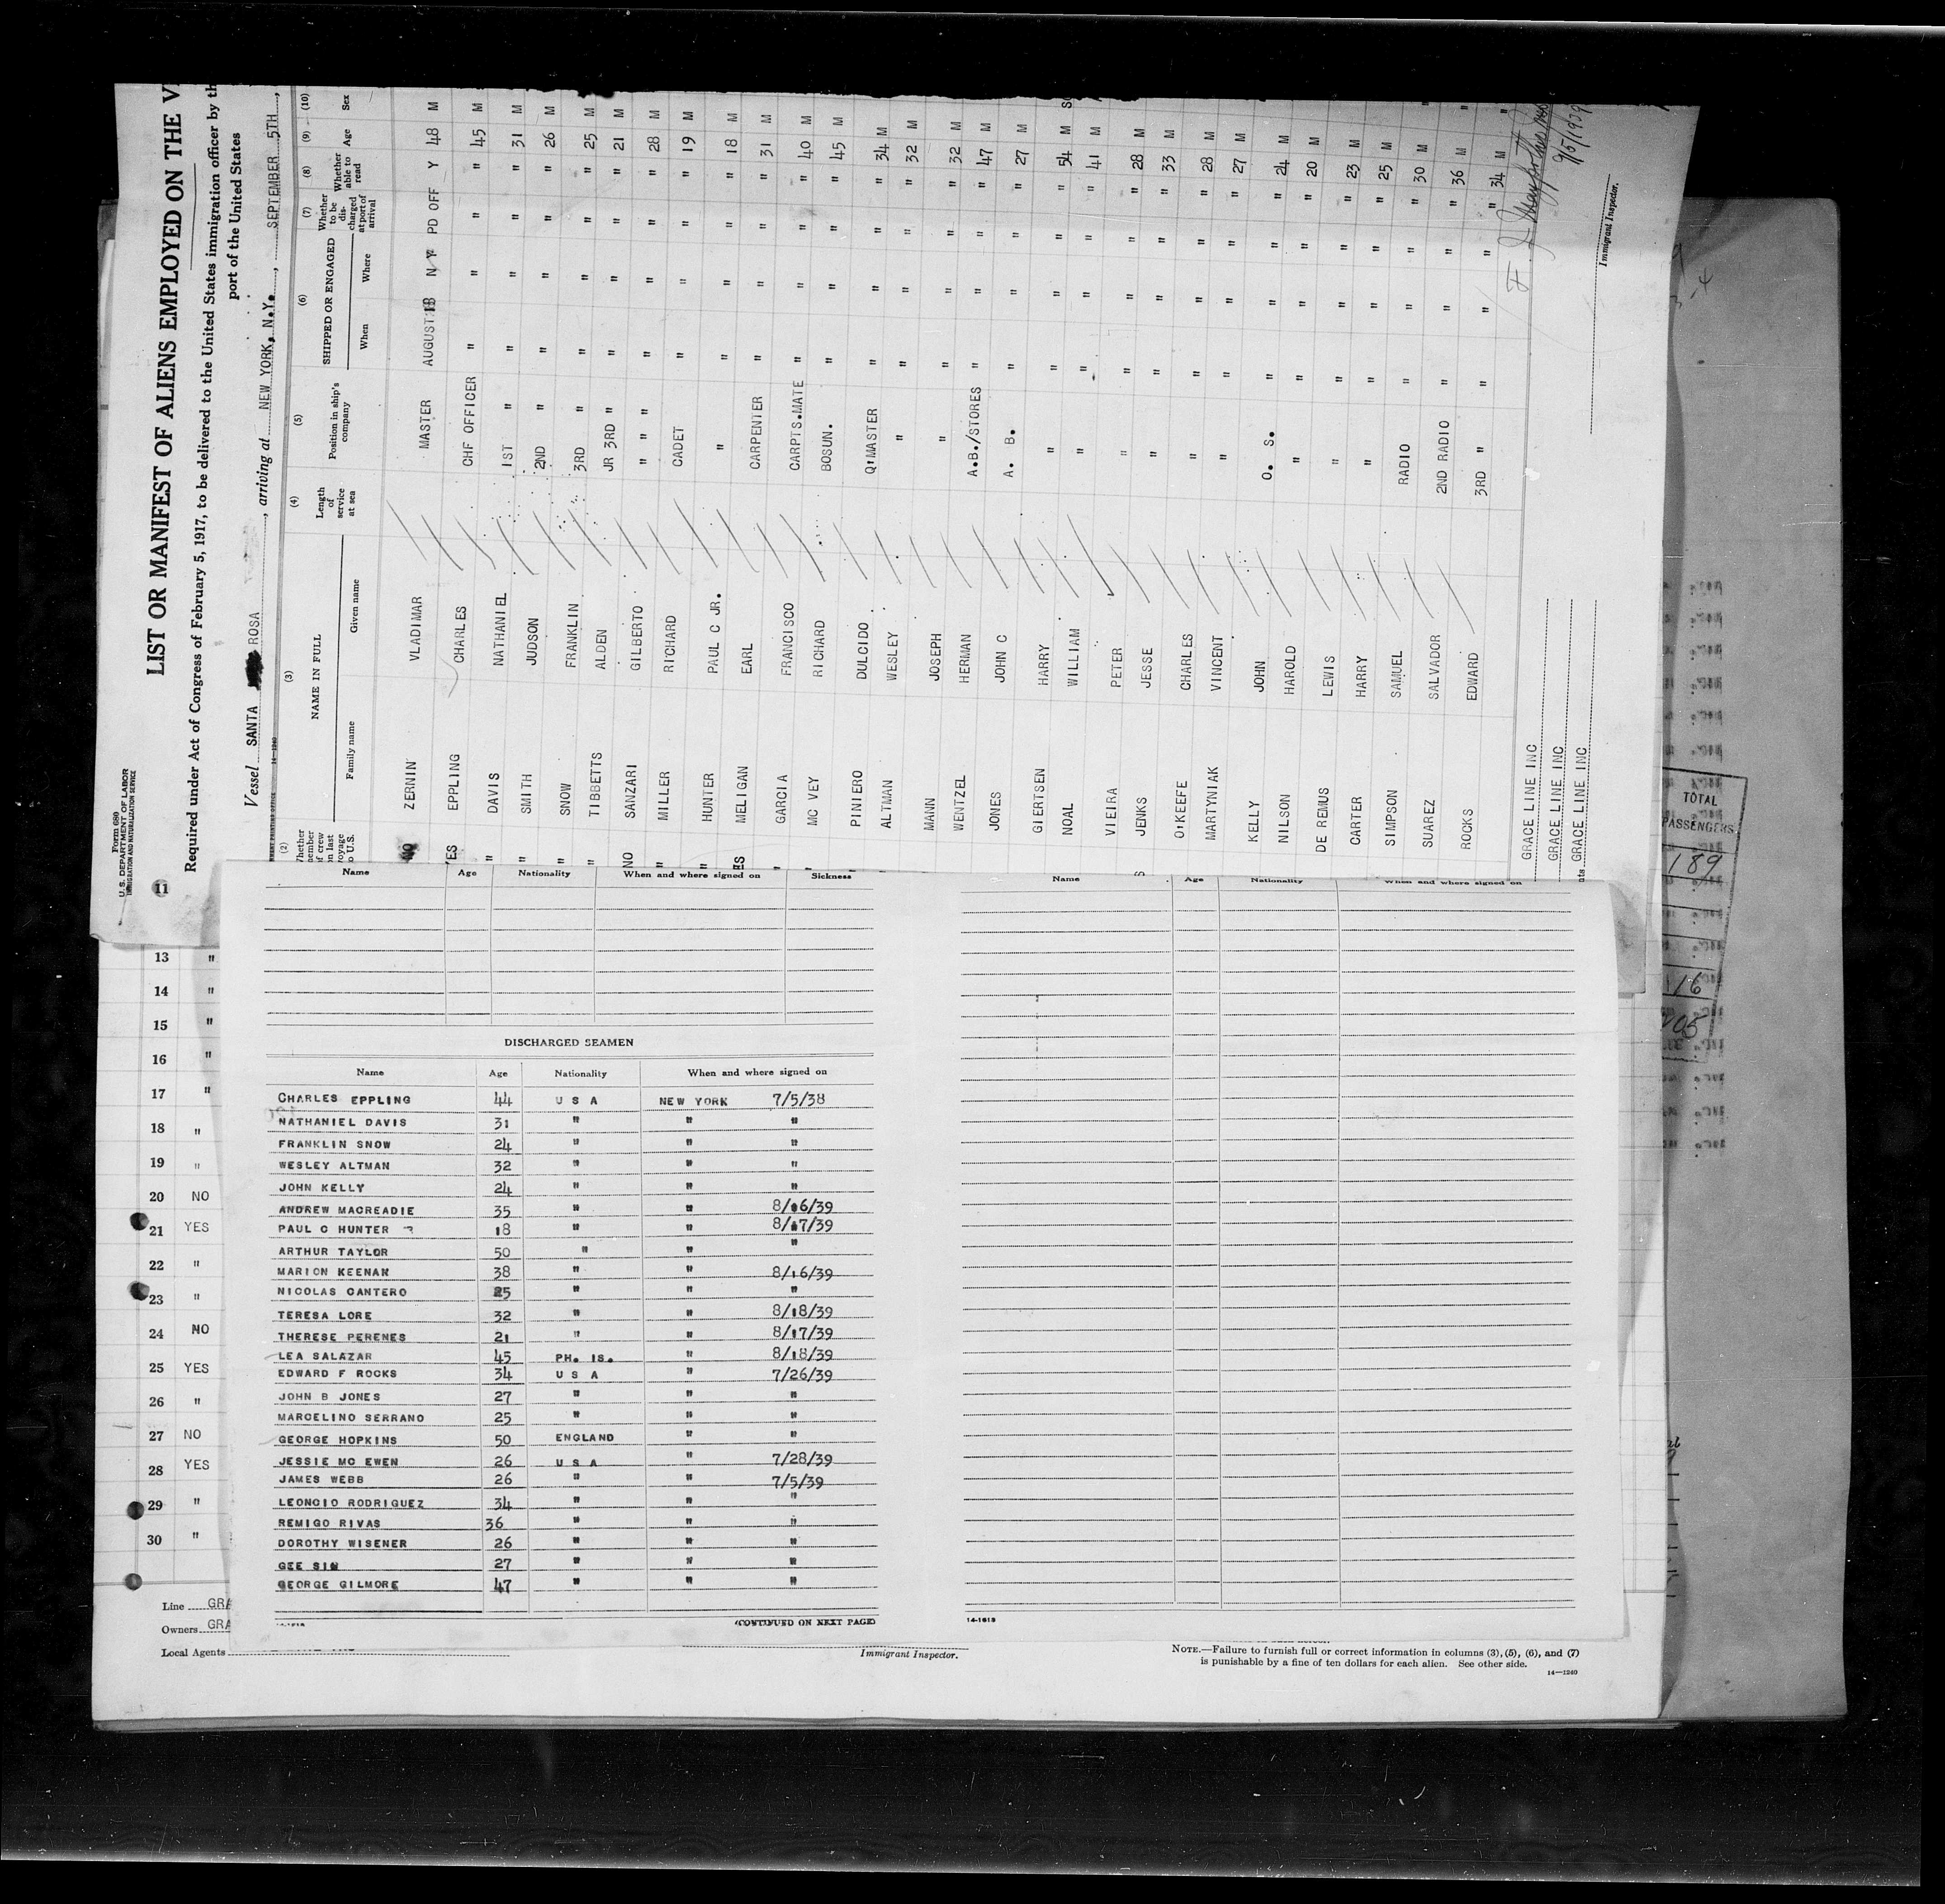 Form 680
U.S. DEPARTMENT OF LABOR
IMMIGRATION AND NATURALIZATION SERVICE
LIST OR MANIFEST OF ALIENS EMPLOYED ON THE V
Required under Act of Congress of February 5, 1917, to be delivered to the United States immigration officer by th
port of the United States
Vessel SANTA ROSA, arriving at NEW YORK, N.Y., SEPTEMBER 5TH,
(2) (3) (4) (5) (6) (7) (8) (9) (10)
NAME IN FULL
Family name Given name
Length of service at sea
Position in ship's company
SHIPPED OR ENGAGED
When Where
Whether to be discharged at port of arrival
Whether able to read
Age
Sex
NO ZERNIN VLADIMAR MASTER AUGUST N Y PD OFF Y 48 M
YES EPPLING CHARLES CHF OFFICER " " " " 45 M
" DAVIS NATHANIEL 1ST " " " " " 31 M
" SMITH JUDSON 2ND " " " " " 26 M
" SNOW FRANKLIN 3RD " " " " " 25 M
" TIBBETTS ALDEN JR 3RD " " " " " 21 M
NO SANZARI GILBERTO " " " " " " 28 M
" MILLER RICHARD CADET " " " " 19 M
" HUNTER PAUL C JR. " " " " " 18 M
YES MELIGAN EARL CARPENTER " " " " 31 M
" GARCIA FRANCISCO CARPTS.MATE " " " " 40 M
" MC VEY RICHARD BOSUN. " " " " 45 M
" PINIERO DULCIDO Q'MASTER " " " " 34 M
ALTMAN WESLEY " " " " " 32 M
MANN JOSEPH " " " " " 32 M
WENTZEL HERMAN A.B./STORES " " " " 47 M
JONES JOHN C A. B. " " " " 27 M
GIERTSEN HARRY " " " " " 54 M
NOAL WILLIAM " " " " " 41 M
VIEIRA PETER " " " " " 28 M
JENKS JESSE " " " " " 33 M
O'KEEFE CHARLES " " " " " 28 M
MARTYNIAK VINCENT " " " " " 27 M
KELLY JOHN O. S. " " " " 24 M
NILSON HAROLD " " " " " 20 M
DE REMUS LEWIS " " " " " 23 M
CARTER HARRY " " " " " 25 M
SIMPSON SAMUEL RADIO " " " " 30 M
SUAREZ SALVADOR 2ND RADIO " " " " 36 M
ROCKS EDWARD 3RD " " " " " 34 M
GRACE LINE INC
GRACE LINE INC
GRACE LINE INC
9/5/1939
Immigrant Inspector.
TOTAL
PASSENGERS
189
11
13 "
14 "
15 "
16 "
17 "
18 "
19 "
20 NO
21 YES
22 "
23 "
24 NO
25 YES
26 "
27 NO
28 YES
29 "
30 "
Name Age Nationality When and where signed on Sickness
Name Age Nationality When and where signed on
DISCHARGED SEAMEN
Name Age Nationality When and where signed on
CHARLES EPPLING 44 U S A NEW YORK 7/5/38
NATHANIEL DAVIS 31 " " "
FRANKLIN SNOW 24 " " "
WESLEY ALTMAN 32 " " "
JOHN KELLY 24 " " "
ANDREW MACREADIE 35 " " 8/16/39
PAUL C HUNTER 18 " " 8/17/39
ARTHUR TAYLOR 50 " " "
MARION KEENAN 38 " " 8/16/39
NICOLAS CANTERO 25 " " "
TERESA LORE 32 " " 8/18/39
THERESE PERENES 21 " " 8/17/39
LEA SALAZAR 45 PH. IS. " 8/18/39
EDWARD F ROCKS 34 U S A " 7/26/39
JOHN B JONES 27 " " "
MARCELINO SERRANO 25 " " "
GEORGE HOPKINS 50 ENGLAND " "
JESSIE MC EWEN 26 U S A " 7/28/39
JAMES WEBB 26 " " 7/5/39
LEONCIO RODRIGUEZ 34 " " "
REMIGO RIVAS 36 " " "
DOROTHY WISENER 26 " " "
GEE SIN 27 " " "
GEORGE GILMORE 47 " " "
(CONTINUED ON NEXT PAGE)
14-1618
Line GRA
Owners GRA
Local Agents
Immigrant Inspector.
NOTE.—Failure to furnish full or correct information in columns (3), (5), (6), and (7)
is punishable by a fine of ten dollars for each alien. See other side.
14—1240